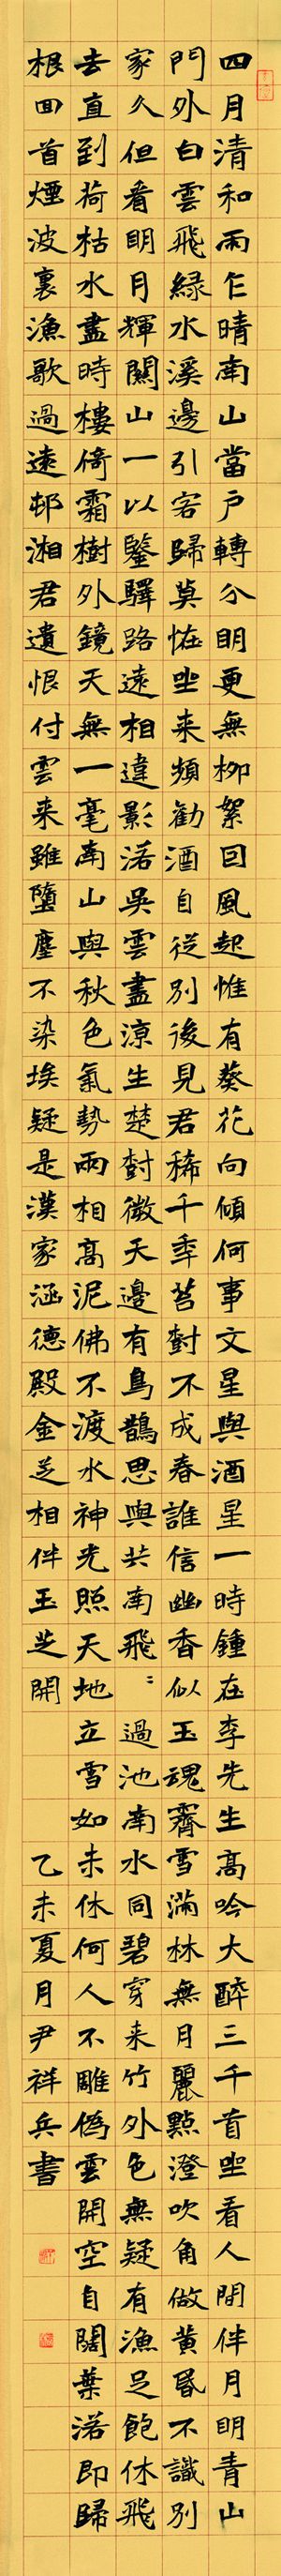 四月清和雨乍晴南山當戶轉分明更無柳絮回風起惟有葵花向傾何事文星與酒星一時鍾在李先生高吟大醉三千首坐看人間伴月明青山
門外白雲飛綠水溪邊引客歸莫怪坐来頻勸酒自從別後見君稀千年苔樹不成春誰信幽香似玉魂霽雪滿林無月麗點澄吹角做黃昏不識別
家久但看明月輝關山一以鑒驛路遠相違影落吳雲盡涼生楚樹微天邊有烏鵲思與共南飛：過池南水同碧穿来竹外色無疑有漁足飽休飛
去直到荷枯水盡時樓倚霜樹外鏡天無一毫南山與秋色氣勢兩相高泥佛不渡水神光照天地立雪如未休何人不雕偽雲開空自闊葉落即歸
根回首煙波裏漁歌過遠邨湘君遺恨付雲来雖墮塵不染埃疑是漢家涵德殿金芝相伴玉芝開
乙未夏月尹祥兵書